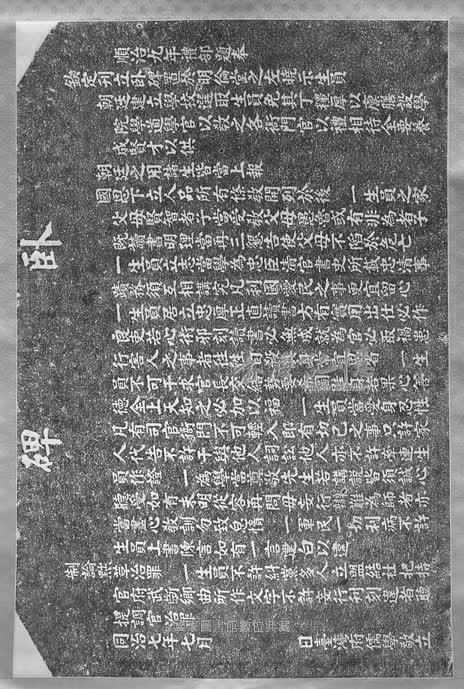 臥碑
順治九年禮部題奉
欽定刊立臥碑置於明倫堂之左曉示生員
朝廷建立學校選取生員免其丁糧厚以廩膳設學
院學道學官以教之各衙門官以禮相待全要養
成賢才以供
朝廷之用諸生皆當上報
國恩下立人品所有條教開列於後　一生員之家
父母賢智者子當受教父母愚魯或有非為者子
既讀書明理當再三懇告使父母不陷於危亡
一生員立志當學為忠臣清官書史所載忠清事
蹟務須互相講究凡利國愛民之事更宜留心
一生員居心忠厚正直讀書方有實用出仕必作
良吏若心術邪刻讀書必無成就為官必取禍患
行害人之事者往往自殺其身宜思省　一生
員不可干求官長交結勢要希圖進身若果心善
德全上天知之必加以福　一生員當愛身忍性
凡有司官衙門不可輕入即有切己之事只許家
人代告不許干與他人詞訟他人亦不許牽連生
員作證　一為學當尊敬先生若講說皆須誠心
聽受如有未明從容再問毋妄行辯難為師者亦
當盡心教訓勿致怠惰　一軍民一切利病不許
生員上書陳言如有一言建白以違
制論黜革治罪　一生員不許糾黨多人立盟結社把持
官府武斷鄉曲所作文字不許妄行刊刻違者聽
提調官治罪
同治七年七月　日臺灣府儒學敬立
臺灣記憶
圖書館數位典藏